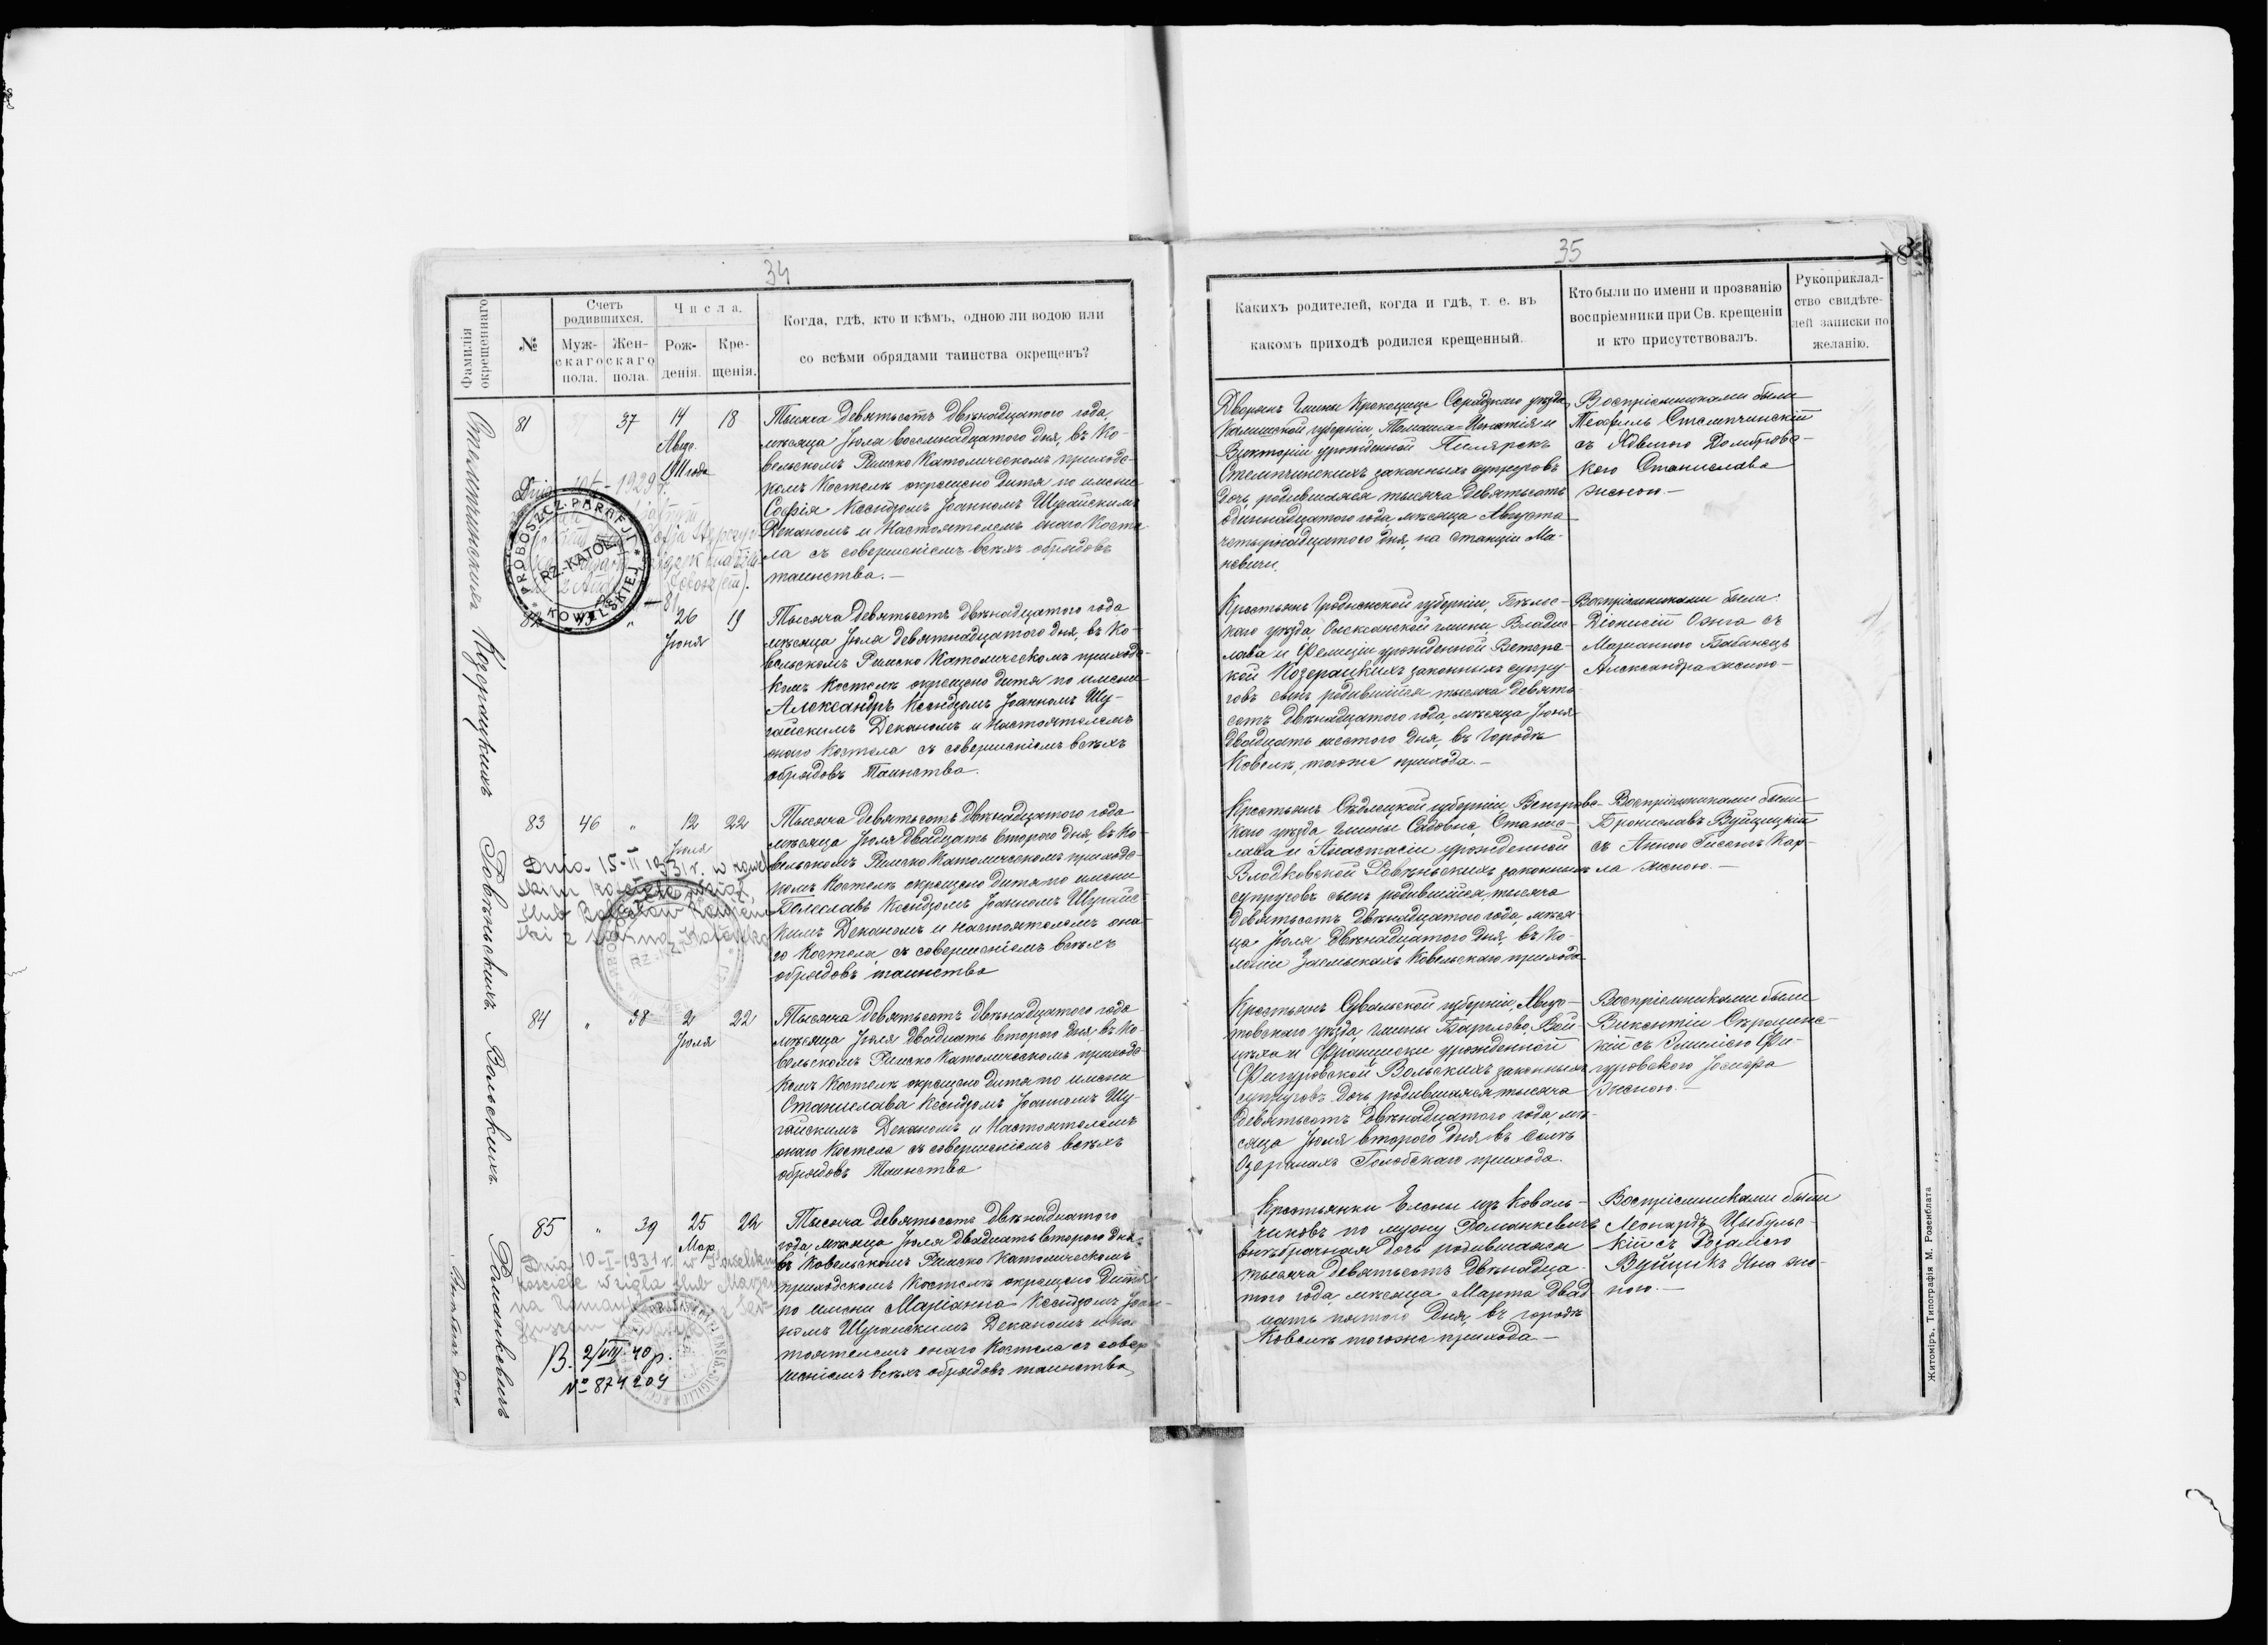 34
Фамилія
окрещеннаго.
№
Счетъ
родившихся.
Муж-
скаго
пола.
Жен-
скаго
пола.
Числа.
Рож-
денія.
Кре-
щенія.
Когда, гдѣ, кто и кѣмъ, одною ли водою или
со всѣми обрядами таинства окрещенъ?
81
37
14
Авгус.
1911 года
18
Тысяча девятьсотъ двѣнадцатого года,
мѣсяца Іюля восемнадцатого дня, въ Ко-
вельскомъ Римско Католическомъ приходс-
комъ Костелѣ окрещено дитя по имени
Софія Ксендзомъ Іоанномъ Шурайскимъ
Деканомъ и Настоятелемъ онаго Косте-
ла съ совершеніемъ всѣхъ обрядовъ
таинства.—
PROBOSZCZ PARAFJI
RZ.-KATOL.
KOWELSKIEJ
82
"
26
Іюня
19
Тысяча девятьсотъ двѣнадцатого года
мѣсяца Іюля девятнадцатого дня, въ Ко-
вельскомъ Римско Католическомъ приходс-
комъ Костелѣ окрещено дитя по имени
Александръ Ксендзомъ Іоанномъ Шу-
райскимъ Деканомъ и Настоятелемъ
онаго Костела съ совершеніемъ всѣхъ
обрядовъ Таинства.
Козерацкихъ
83
46
"
12
Іюля
22
Тысяча девятьсотъ двѣнадцатого года
мѣсяца Іюля двадцать второго дня, въ Ко-
вельскомъ Римско Католическомъ приходс-
комъ Костелѣ окрещено дитя по имени
Болеславъ Ксендзомъ Іоанномъ Шурайс-
кимъ Деканомъ и Настоятелемъ она-
го Костела съ совершеніемъ всѣхъ
обрядовъ таинства
Dnia 15-II 1931 r. w
84
"
38
2
Іюля
22
Тысяча девятьсотъ двѣнадцатого года
мѣсяца Іюля двадцать второго дня, въ Ко-
вельскомъ Римско Католическомъ приходс-
комъ Костелѣ окрещено дитя по имени
Станислава Ксендзомъ Іоанномъ Шу-
райскимъ Деканомъ и Настоятелемъ
онаго Костела съ совершеніемъ всѣхъ
обрядовъ Таинства
Вольскихъ.
85
"
39
25
Мар.
22
Тысяча девятьсотъ двѣнадцатого
года, мѣсяца Іюля двадцать второго дня,
въ Ковельскомъ Римско Католическомъ
приходскомъ Костелѣ окрещено дитя
по имени Маріанна Ксендзомъ Іоан-
номъ Шурайскимъ Деканомъ и Нас-
тоятелемъ онаго Костела съ совер-
шеніемъ всѣхъ обрядовъ таинства
Романкевичъ
Dnia 10-I-1931 r. w
B. 2/VIII. 40 р.
№ 874204
35
Какихъ родителей, когда и гдѣ, т. е. въ
какомъ приходѣ родился крещенный.
Кто были по имени и прозванію
воспріемники при Св. крещеніи
и кто присутствовалъ.
Рукоприклад-
ство свидѣте-
лей записки по
желанію.
Дворянъ Гмины Крокоцице Серадзкаго уѣзда,
Калишской губерніи Томаша-Игнатія и
Викторіи урожденной
Стемпчинскихъ законныхъ супруговъ
дочь, родившаяся тысяча девятьсотъ
одиннадцатого года, мѣсяца Августа
четырнадцатого дня, на станціи Ма-
невичи.
Воспріемниками были
Теофиль Стемпчинскій
съ Ядвигою Домбровс-
кого Станислава
женою.—
Крестьянъ Гродненской губерніи, Бѣльс-
каго уѣзда, Олексинской гмины, Владис-
лава и Фелиціи урожденной
кой Козерацкихъ законныхъ супру-
говъ сынъ, родившійся тысяча девять-
сотъ двѣнадцатого года, мѣсяца Іюня
двадцать шестого дня, въ городѣ
Ковелѣ, тогоже прихода.—
Воспріемниками были:
Діонисій съ
Маріанною Бабинецъ
Александра женою—
Крестьянъ Сѣдлецкой губерніи Венгровс-
каго уѣзда, гмины Садовне, Станис-
лава и Анастасіи урожденной
Влодковской Ровѣньскихъ законныхъ
супруговъ сынъ, родившійся тысяча
девятьсотъ двѣнадцатого года, мѣся-
ца Іюля двѣнадцатого дня, въ Ко-
лоніи Ковельскаго прихода
Воспріемниками были
Брониславъ Вуйцицкій
съ Анною Кар-
ла женою.—
Крестьянъ Сувальской губерніи, Авгус-
товскаго уѣзда, гмины Баргловъ, Вой-
цѣха и Франциски урожденной
Фигуровской Вольскихъ законныхъ
супруговъ дочь, родившаяся тысяча
девятьсотъ двѣнадцатого года, мѣ-
сяца Іюля второго дня въ селѣ
Озеранахъ Голобскаго прихода.
Воспріемниками были
Викентій
кій съ Эмиліею Фи-
гуровскаго Іосифа
женою.—
Крестьянки Елены изъ Коваль-
чиковъ по мужу Романкевичъ
внѣбрачная дочь, родившаяся
тысяча девятьсотъ двѣнадца-
того года, мѣсяца Марта двад-
цать пятого дня, въ городѣ
Ковелѣ тогоже прихода.—
Воспріемниками были
Леонардъ Цыбульс-
кій съ Розаліею
Вуйцикъ Яна же-
ною.—
Житоміръ, Типографія М. Розенблата